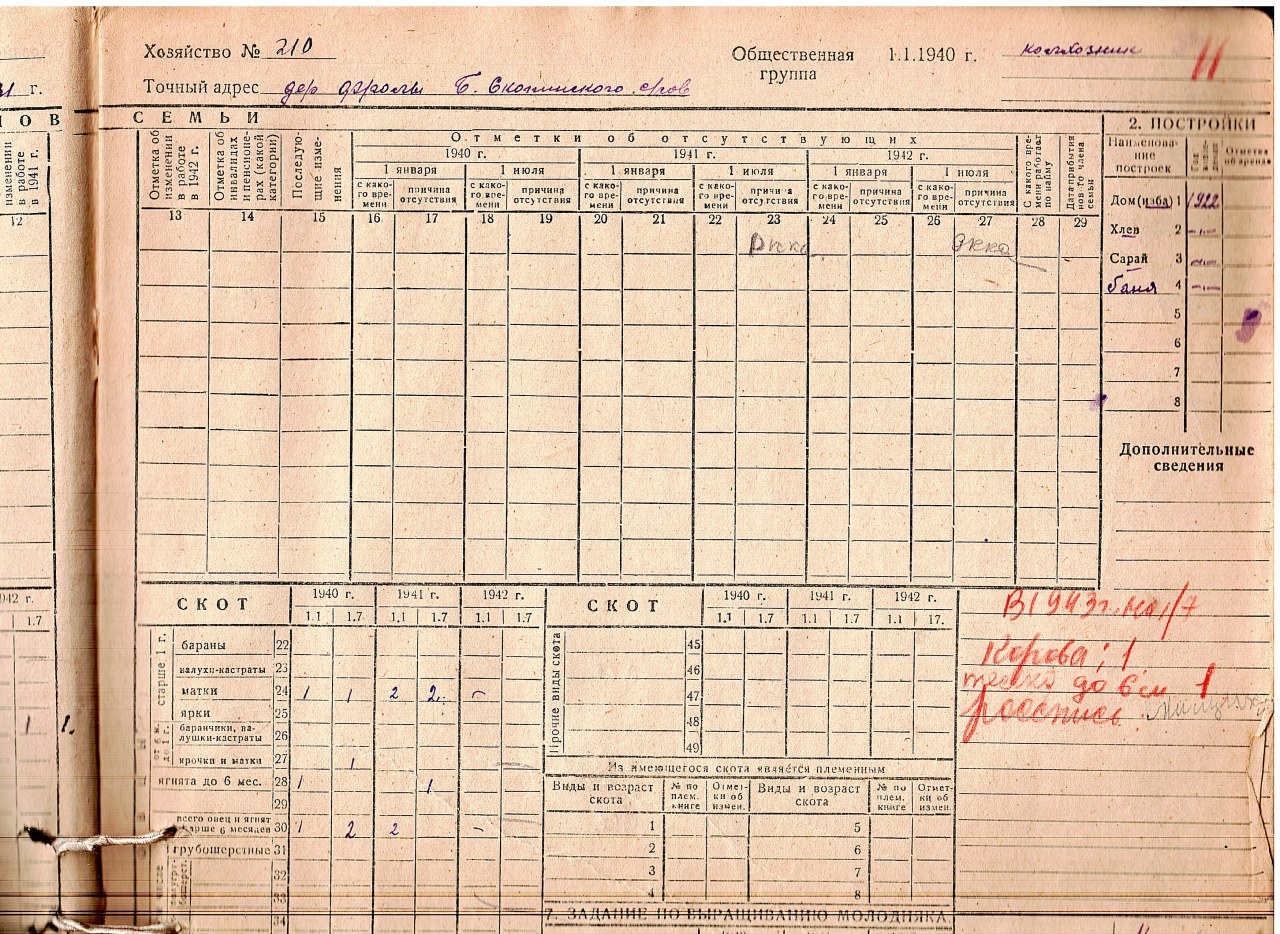 Хозяйство № 210
Общественная группа 1.1.1940 г. колхозник
11
Точный адрес дер Фролы Б.
1 г.
О В
СЕМЬИ
2. ПОСТРОЙКИ
изменении в работе в 1941 г.
Отметка об изменении в работе в 1942 г.
Отметка об инвалидах и пенсионерах (какой категории)
Последующие изменения
Отметки об отсутствующих
1940 г. 1941 г. 1942 г.
1 января 1 июля 1 января 1 июля 1 января 1 июля
с како-го вре-мени причина отсутствия с како-го вре-мени причина отсутствия с како-го вре-мени причина отсутствия с како-го вре-мени причина отсутствия с како-го вре-мени причина отсутствия с како-го вре-мени причина отсутствия
С какого вре-мени работает по найму
Дата прибытия нового члена семьи
12 13 14 15 16 17 18 19 20 21 22 23 24 25 26 27 28 29
Наименова-ние построек
Отметка об
Дом (изба) 1 1922
Хлев 2 -"-
Сарай 3 -"-
баня 4 -"-
5
6
7
8
Дополнительные сведения
942 г.
1.7
1 1.
СКОТ 1940 г. 1941 г. 1942 г.
1.1 1.7 1.1 1.7 1.1 1.7
старше 1 г.
бараны 22
валухи-кастраты 23
матки 24 1 1 2 2 -
ярки 25
от 6 м. до 1 г.
баранчики, ва-лушки-кастраты 26
ярочки и матки 27 1
ягнята до 6 мес. 28 1 1
29
всего овец и ягнят старше 6 месяцев 30 1 2 2 -
грубошерстные 31
32
33
34
СКОТ 1940 г. 1941 г. 1942 г.
1.1 1.7 1.1 1.7 1.1 17.
Прочие виды скота
45
46
47
48
49
Из имеющегося скота является племенным
Виды и возраст скота № по плем. книге Отмет-ки об измен. Виды и возраст скота № по плем. книге Отмет-ки об измен.
1 5
2 6
3 7
4 8
7. ЗАДАНИЕ ПО ВЫРАЩИВАНИЮ МОЛОДНЯКА
В 1943 г. на 1/7
Корова: 1
до 6 м 1
роспись